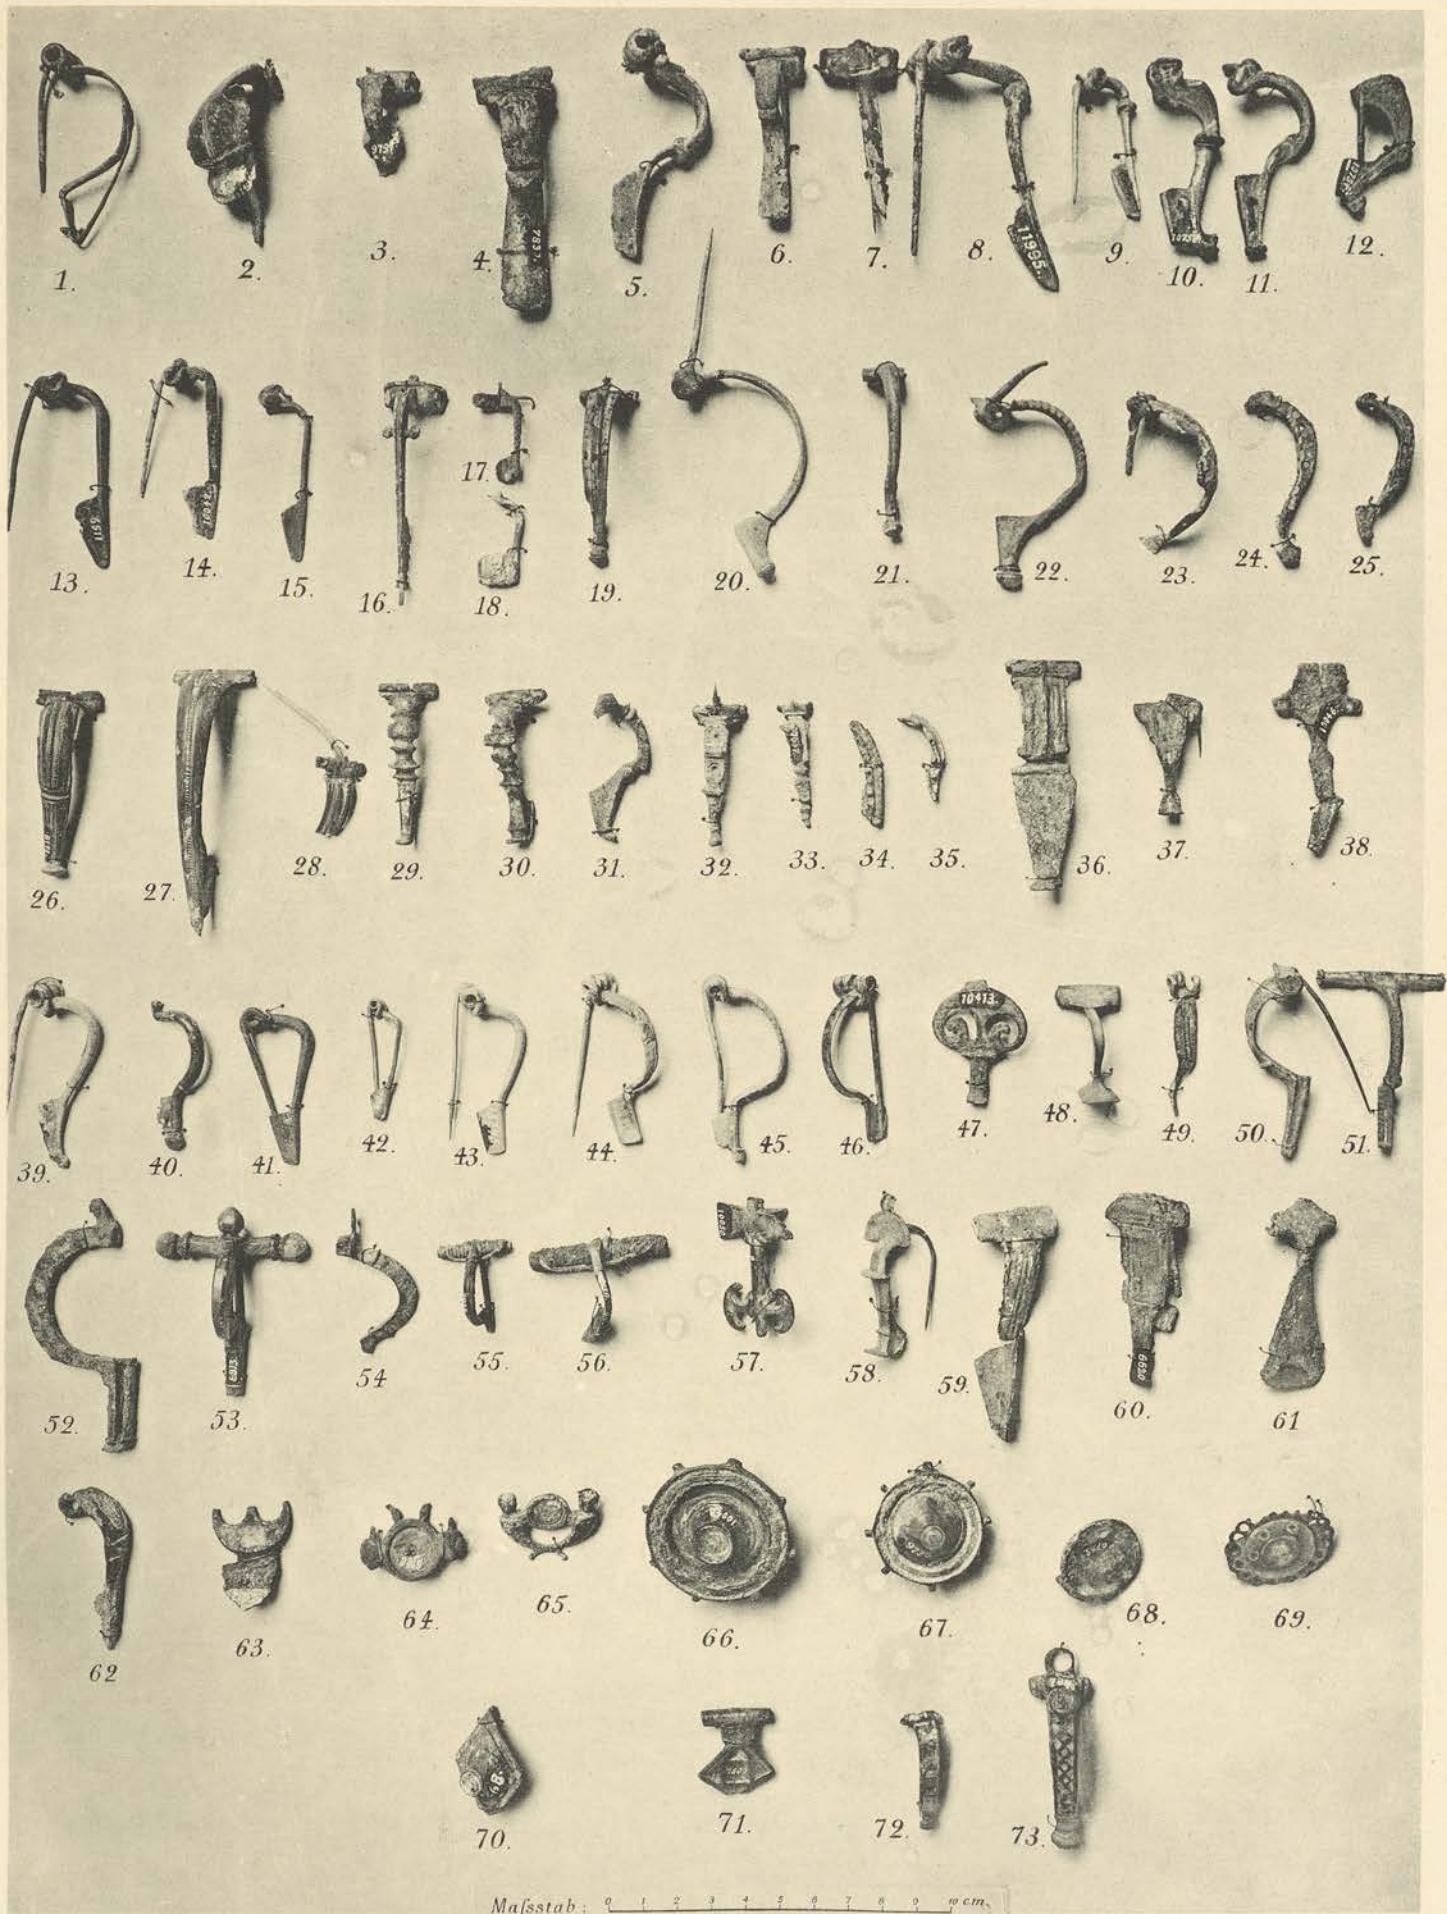 1.
2.
3.
4.
5.
6.
7.
8.
9.
10.
11.
12.
11995.
13.
14.
15.
16.
17.
18.
19.
20.
21.
22.
23.
24.
25.
26.
27.
28.
29.
30.
31.
32.
33.
34.
35.
36.
37.
38.
10413.
39.
40.
41.
42.
43.
44.
45.
46.
47.
48.
49.
50.
51.
52.
53.
54
55.
56.
57.
58.
59.
60.
61
6520
62
63.
64.
65.
66.
67.
68.
69.
70.
71.
72.
73.
Maſsstab: 0 1 2 3 4 5 6 7 8 9 10 cm.